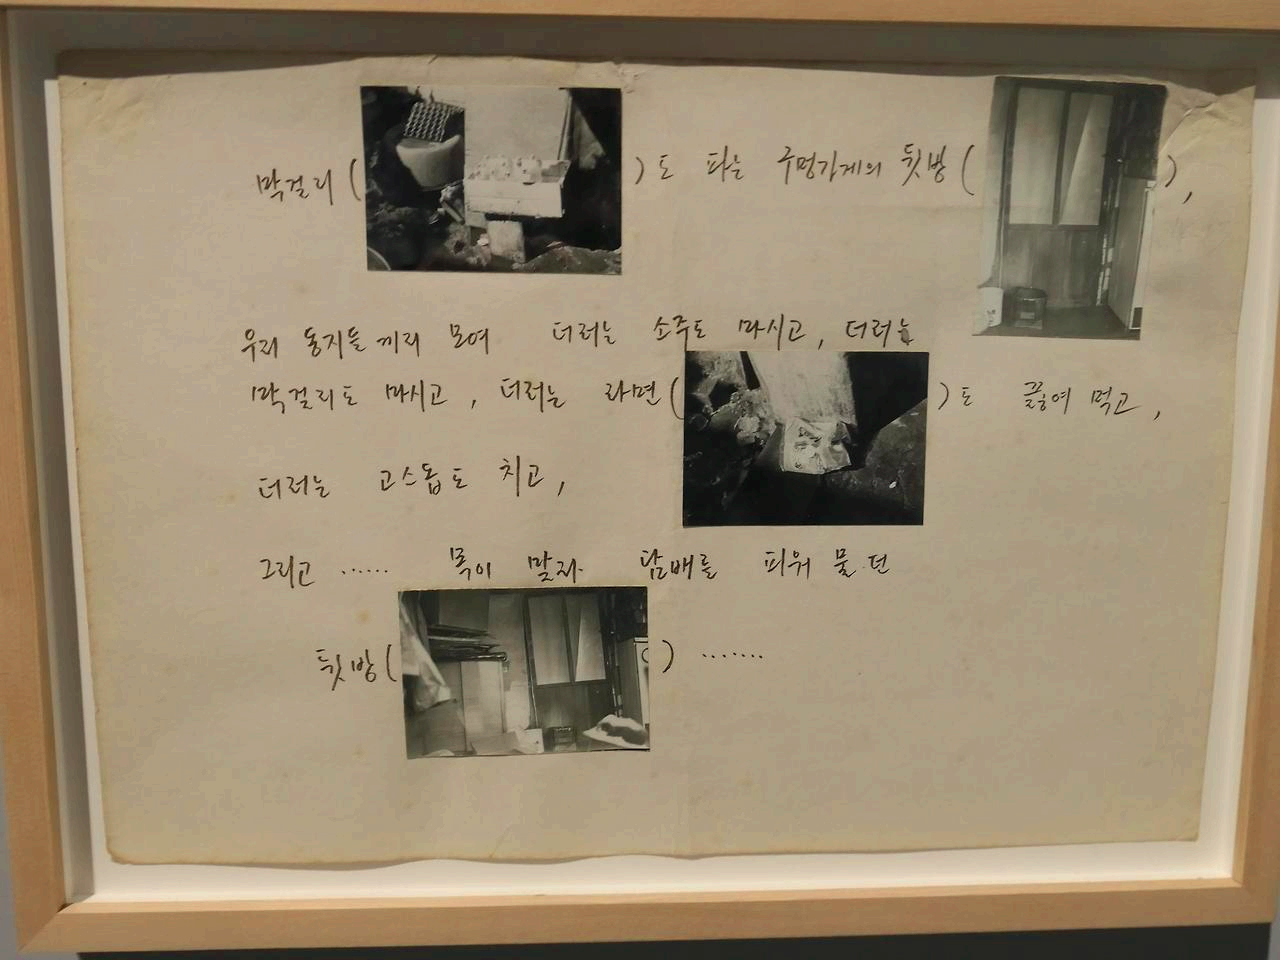 막걸리( )도 파는 구멍가게의 뒷방( ),
우리 동지들끼리 모여 더러는 소주도 마시고, 더러는
막걸리도 마시고, 더러는 라면( )도 끓여 먹고,
더러는 고스톱도 치고,
그리고 …… 목이 말라 담배를 피워 물던
뒷방( ) .......